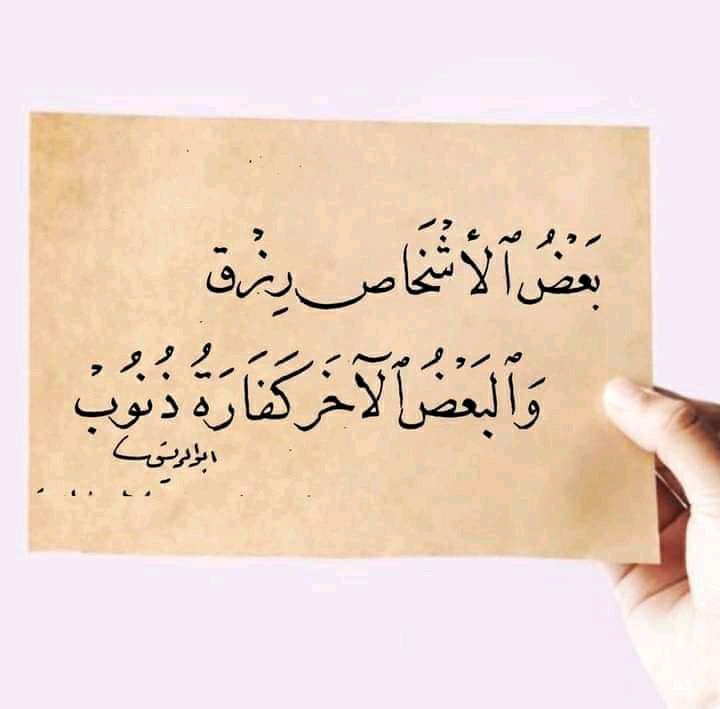 بَعْضُ ٱلأشْخَاص رِزْق
وَٱلبَعْضُ ٱلآخَر كَفَارَةُ ذُنُوبْ